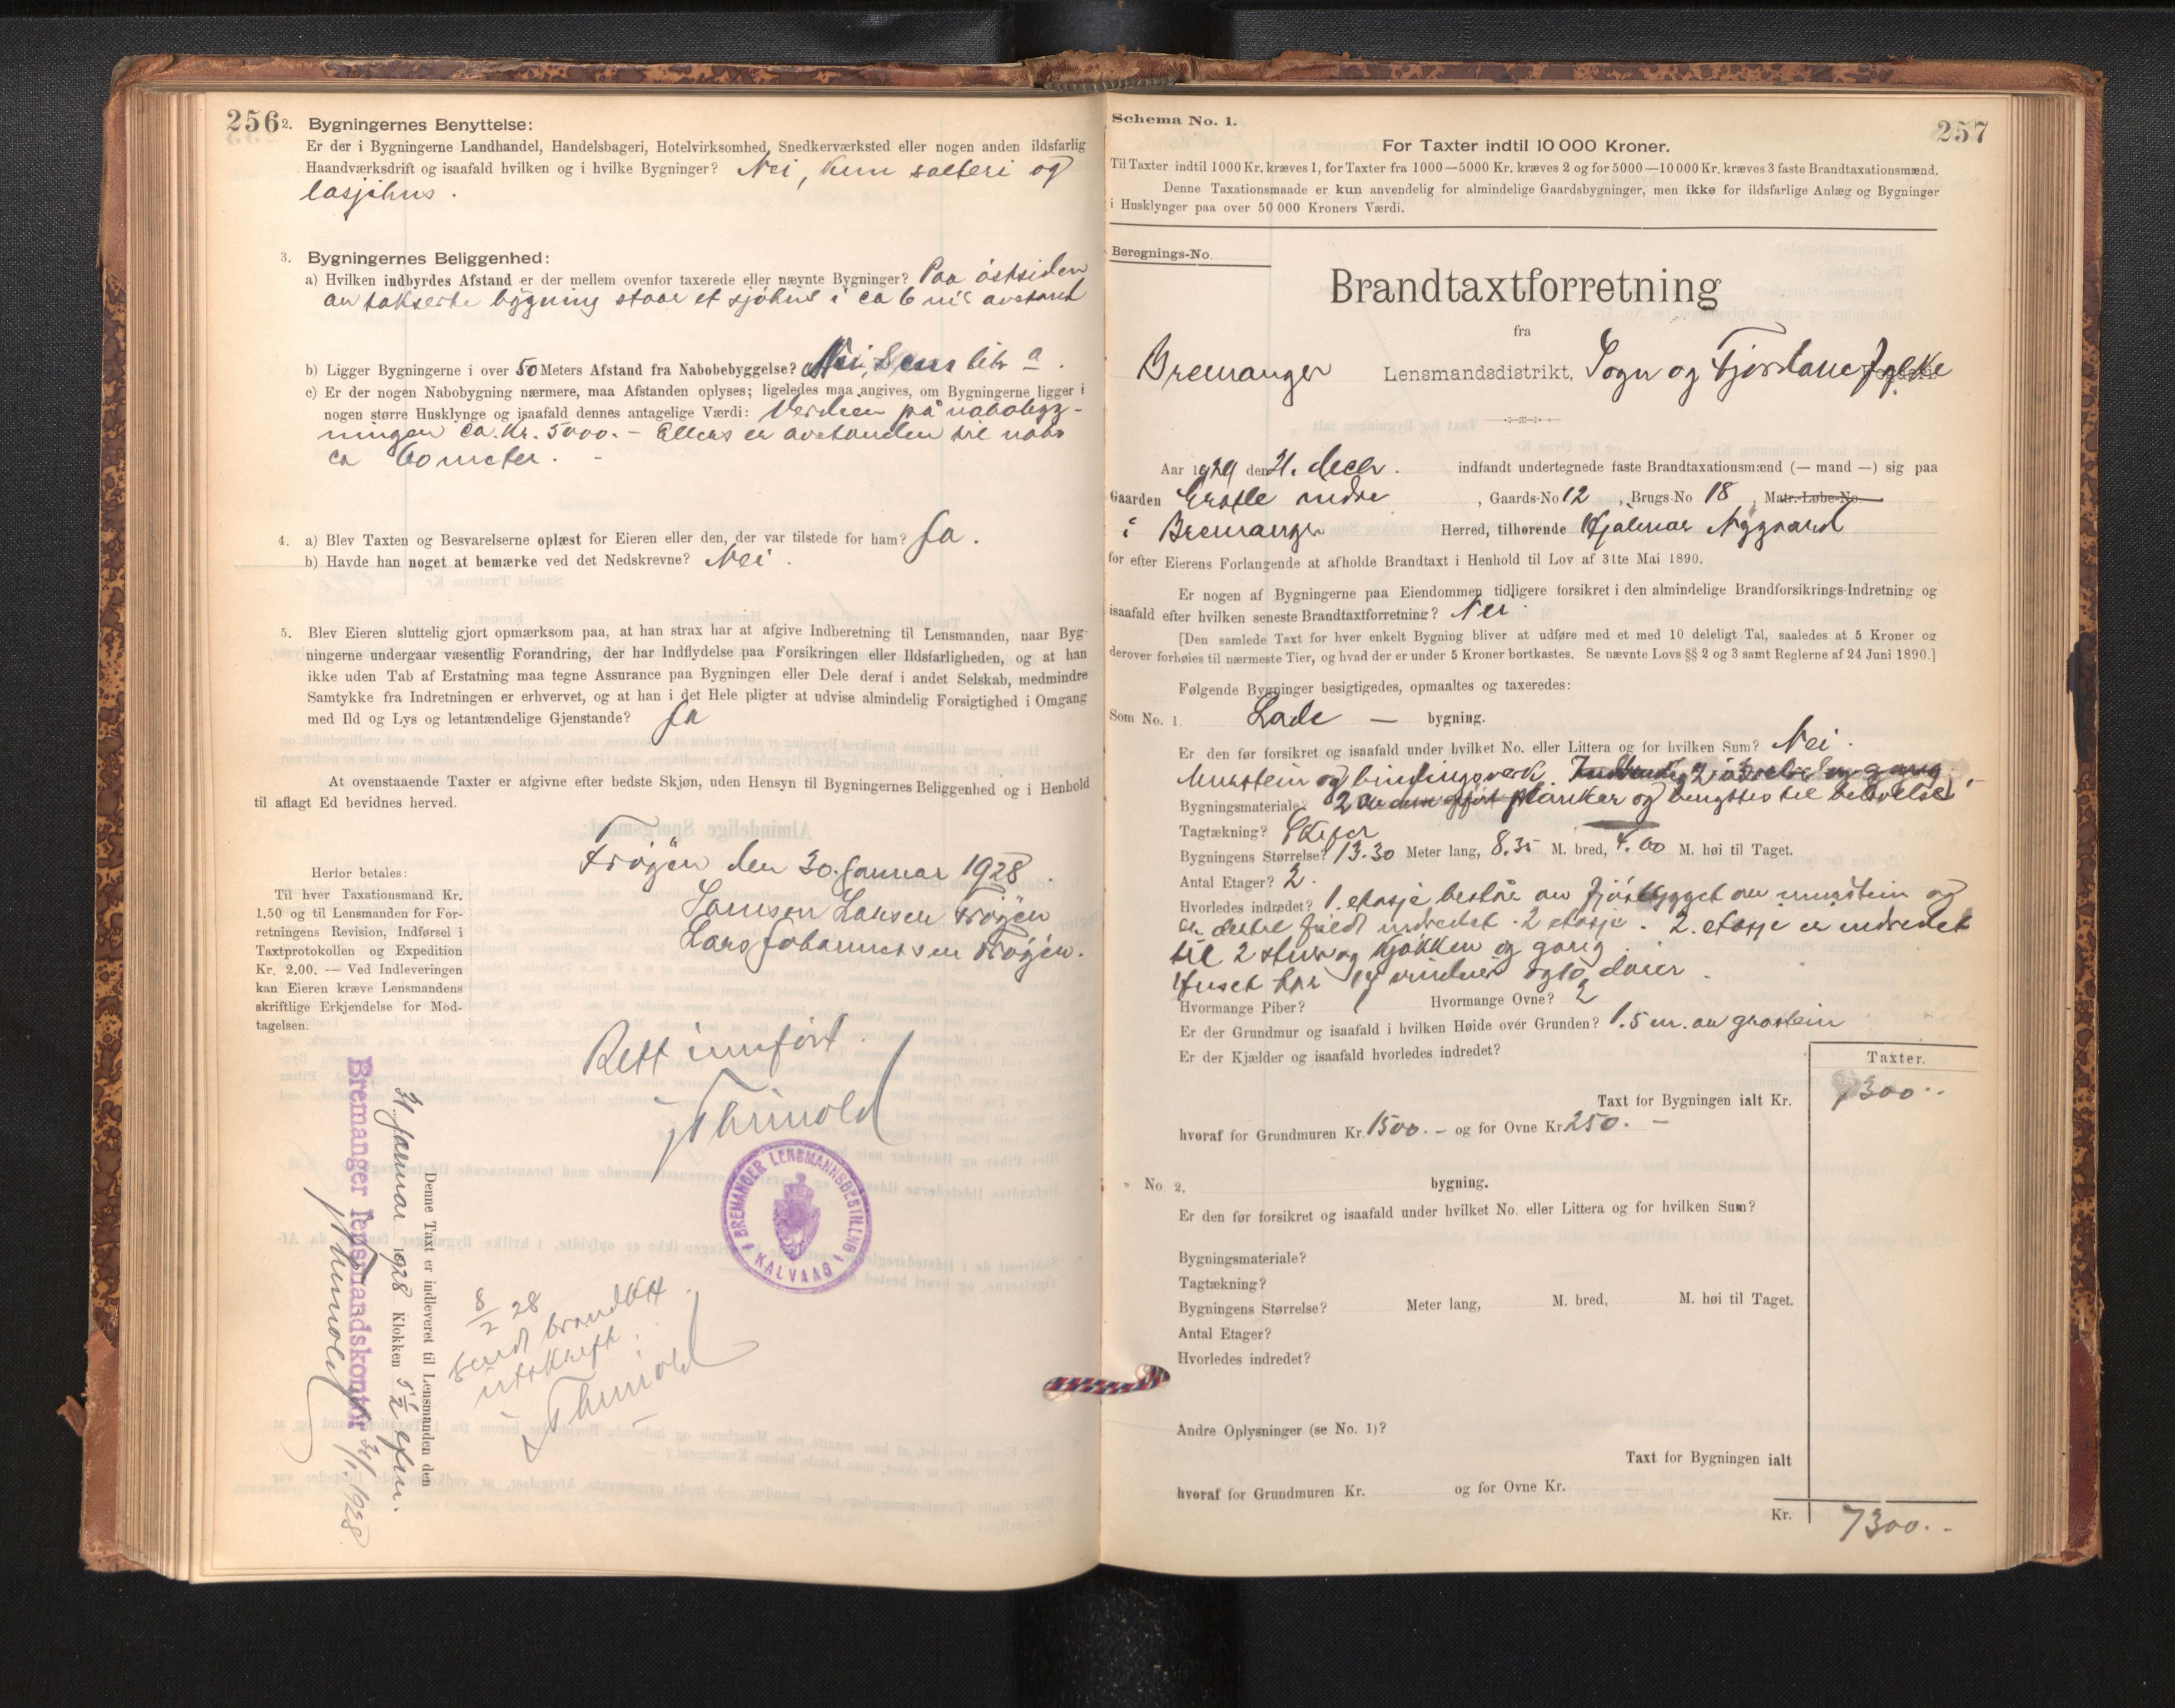 256
2. Bygningernes Benyttelse:
Er der i Bygningerne Landhandel, Handelsbageri, Hotelvirksomhed, Snedkerværksted eller nogen anden ildsfarlig
Haandværksdrift og isaafald hvilken og i hvilke Bygninger? Nei, kun salteri og
lasjøhus.
3. Bygningernes Beliggenhed:
a) Hvilken indbyrdes Afstand er der mellem ovenfor taxerede eller nævnte Bygninger? Paa østsiden
av takserte bygning staar et sjøhus i ca 6 m's avstand
b) Ligger Bygningerne i over 50 Meters Afstand fra Nabobebyggelse? Nei, litr a.
c) Er der nogen Nabobygning nærmere, maa Afstanden oplyses; ligeledes maa angives, om Bygningerne ligger i
nogen større Husklynge og isaafald dennes antagelige Værdi: Verdien på nabobyg-
ningen ca. kr. 5000.- Ellers er avstanden til nabo
ca 60 meter. -
4. a) Blev Taxten og Besvarelserne oplæst for Eieren eller den, der var tilstede for ham? Ja.
b) Havde han noget at bemærke ved det Nedskrevne? Nei.
5. Blev Eieren sluttelig gjort opmærksom paa, at han strax har at afgive Indberetning til Lensmanden, naar Byg-
ningerne undergaar væsentlig Forandring, der har Indflydelse paa Forsikringen eller Ildsfarligheden, og at han
ikke uden Tab af Erstatning maa tegne Assurance paa Bygningen eller Dele deraf i andet Selskab, medmindre
Samtykke fra Indretningen er erhvervet, og at han i det Hele pligter at udvise almindelig Forsigtighed i Omgang
med Ild og Lys og letantændelige Gjenstande? Ja
At ovenstaaende Taxter er afgivne efter bedste Skjøn, uden Hensyn til Bygningernes Beliggenhed og i Henhold
til aflagt Ed bevidnes herved.
Frøyen den 30. Januar 1928.
Lamsen Larsen Frøyen
Lars Johannessen Frøyen.
Herfor betales:
Til hver Taxationsmand Kr.
1.50 og til Lensmanden for For-
retningens Revision, Indførsel i
Taxtprotokollen og Expedition
Kr. 2.00. — Ved Indleveringen
kan Eieren kræve Lensmandens
skriftlige Erkjendelse for Mod-
tagelsen.
Rett innført.
BREMANGER LENSMANNSBESTILLING
KALVAAG
Denne Taxt er indleveret til Lensmanden den
31 Januar 1928 Klokken 5 1/2 efm.
Bremanger lensmandskontor 31/1. 1928
8/2 28
sendt brandktt
utskrift.
257
Schema No. 1.
For Taxter indtil 10 000 Kroner.
Til Taxter indtil 1000 Kr. kræves 1, for Taxter fra 1000—5000 Kr. kræves 2 og for 5000—10000 Kr. kræves 3 faste Brandtaxationsmænd.
Denne Taxationsmaade er kun anvendelig for almindelige Gaardsbygninger, men ikke for ildsfarlige Anlæg og Bygninger
i Husklynger paa over 50 000 Kroners Værdi.
Beregnings-No.
Brandtaxtforretning
fra
Bremanger Lensmandsdistrikt, Sogn og Fjordane fylke
Aar 1929 den 21. decbr. indfandt undertegnede faste Brandtaxationsmænd (— mand —) sig paa
Gaarden Grotle indre, Gaards-No 12, Brugs-No 18, Matr.-Løbe-No.
i Bremanger Herred, tilhørende Hjalmar Nygaard
for efter Eierens Forlangende at afholde Brandtaxt i Henhold til Lov af 31te Mai 1890.
Er nogen af Bygningerne paa Eiendommen tidligere forsikret i den almindelige Brandforsikrings-Indretning og
isaafald efter hvilken seneste Brandtaxtforretning? Nei.
[Den samlede Taxt for hver enkelt Bygning bliver at udføre med et med 10 deleligt Tal, saaledes at 5 Kroner og
derover forhøies til nærmeste Tier, og hvad der er under 5 Kroner bortkastes. Se nævnte Lovs §§ 2 og 3 samt Reglerne af 24 Juni 1890.]
Følgende Bygninger besigtigedes, opmaaltes og taxeredes:
Som No. 1. Lade — bygning.
Er den før forsikret og isaafald under hvilket No. eller Littera og for hvilken Sum? Nei.
Murstein og bindingsverk.
Bygningsmateriale? planker og benyttes til beboelse.
Tagtækning? Skifer
Bygningens Størrelse? 13.30 Meter lang, 8.35 M. bred, 4.00 M. høi til Taget.
Antal Etager? 2.
Hvorledes indredet? 1. etasje består av fjøs bygget av murstein og
er dertil indredet. 2 etasje. 2. etasje er indredet
til 2 stuer og kjøkken og gang.
Huset har 14 vinduer og 10 dører.
Hvormange Piber? 1 Hvormange Ovne? 2
Er der Grundmur og isaafald i hvilken Høide over Grunden? 1.5 m. av graastein
Er der Kjælder og isaafald hvorledes indredet?
Taxter.
Taxt for Bygningen ialt Kr. 7300.-
hvoraf for Grundmuren Kr. 1500.- og for Ovne Kr. 250.-
" No. 2. bygning.
Er den før forsikret og isaafald under hvilket No. eller Littera og for hvilken Sum?
Bygningsmateriale?
Tagtækning?
Bygningens Størrelse? Meter lang, M. bred, M. høi til Taget.
Antal Etager?
Hvorledes indredet?
Andre Oplysninger (se No. 1)?
Taxt for Bygningen ialt
hvoraf for Grundmuren Kr. og for Ovne Kr.
Kr. 7300.-